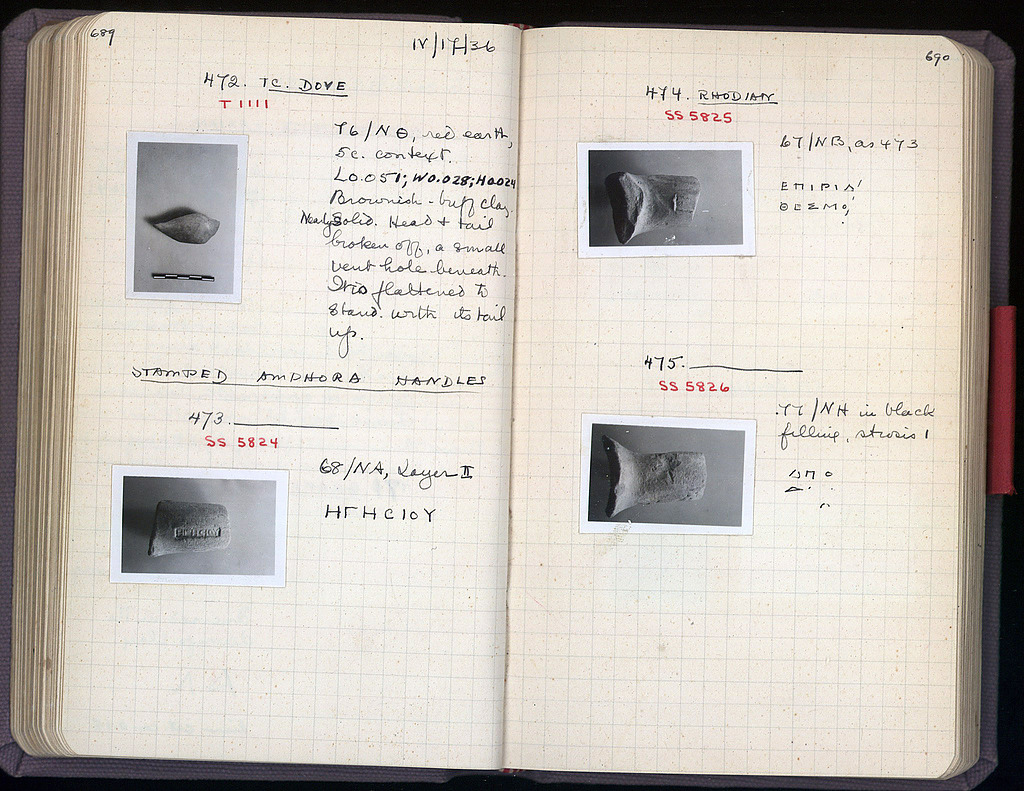 689
IV/17/36
472. TC. DOVE
T 1111
76/NΘ, red earth,
5c. context.
L0.051; W0.028; H0.024
Brownish-buff clay.
Nearly Solid. Head + tail
broken off, a small
vent hole beneath.
It is flattened to
stand. with its tail
up.
STAMPED AMPHORA HANDLES
473.
SS 5824
68/NA, Layer II
ΗΓΗCΙΟΥ
690
474. RHODIAN
SS 5825
67/NB, as 473
ΕΠΙΡΙΔ
ΘΕΣΜΟ
475.
SS 5826
77/NH in black
filling, strosis 1